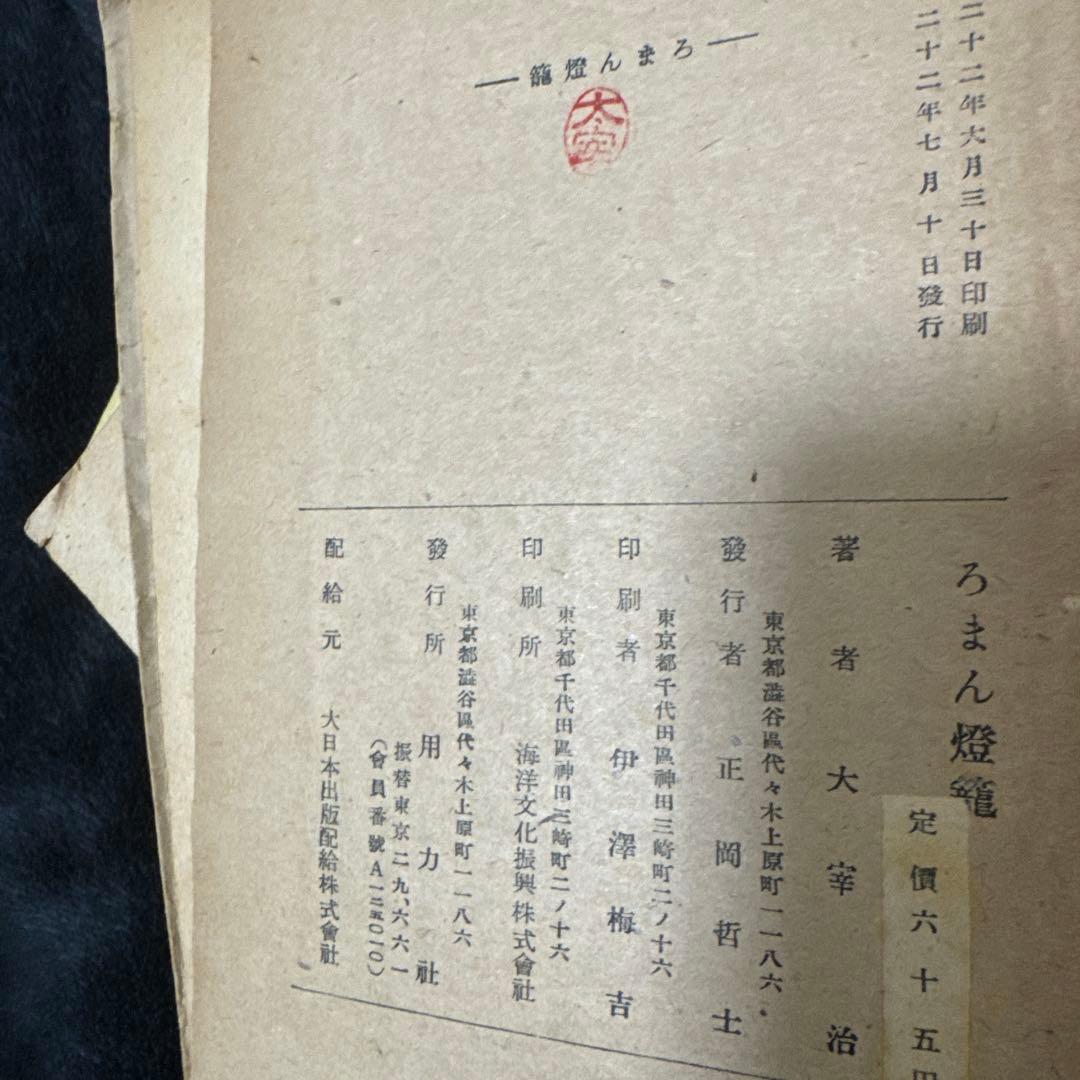 二十二年六月三十日印刷
二十二年七月十日發行
―ろまん燈籠―
ろまん燈籠
定價六十五円
著者 太宰治
東京都澁谷區代々木上原町一一八六
發行者 正岡哲士
東京都千代田區神田三崎町二ノ十六
印刷者 伊澤梅吉
東京都千代田區神田三崎町二ノ十六
印刷所 海洋文化振興株式會社
東京都澁谷區代々木上原町一一八六
發行所 用力社
振替東京二九、六六一
(會員番號A一二五〇一〇)
配給元 大日本出版配給株式會社